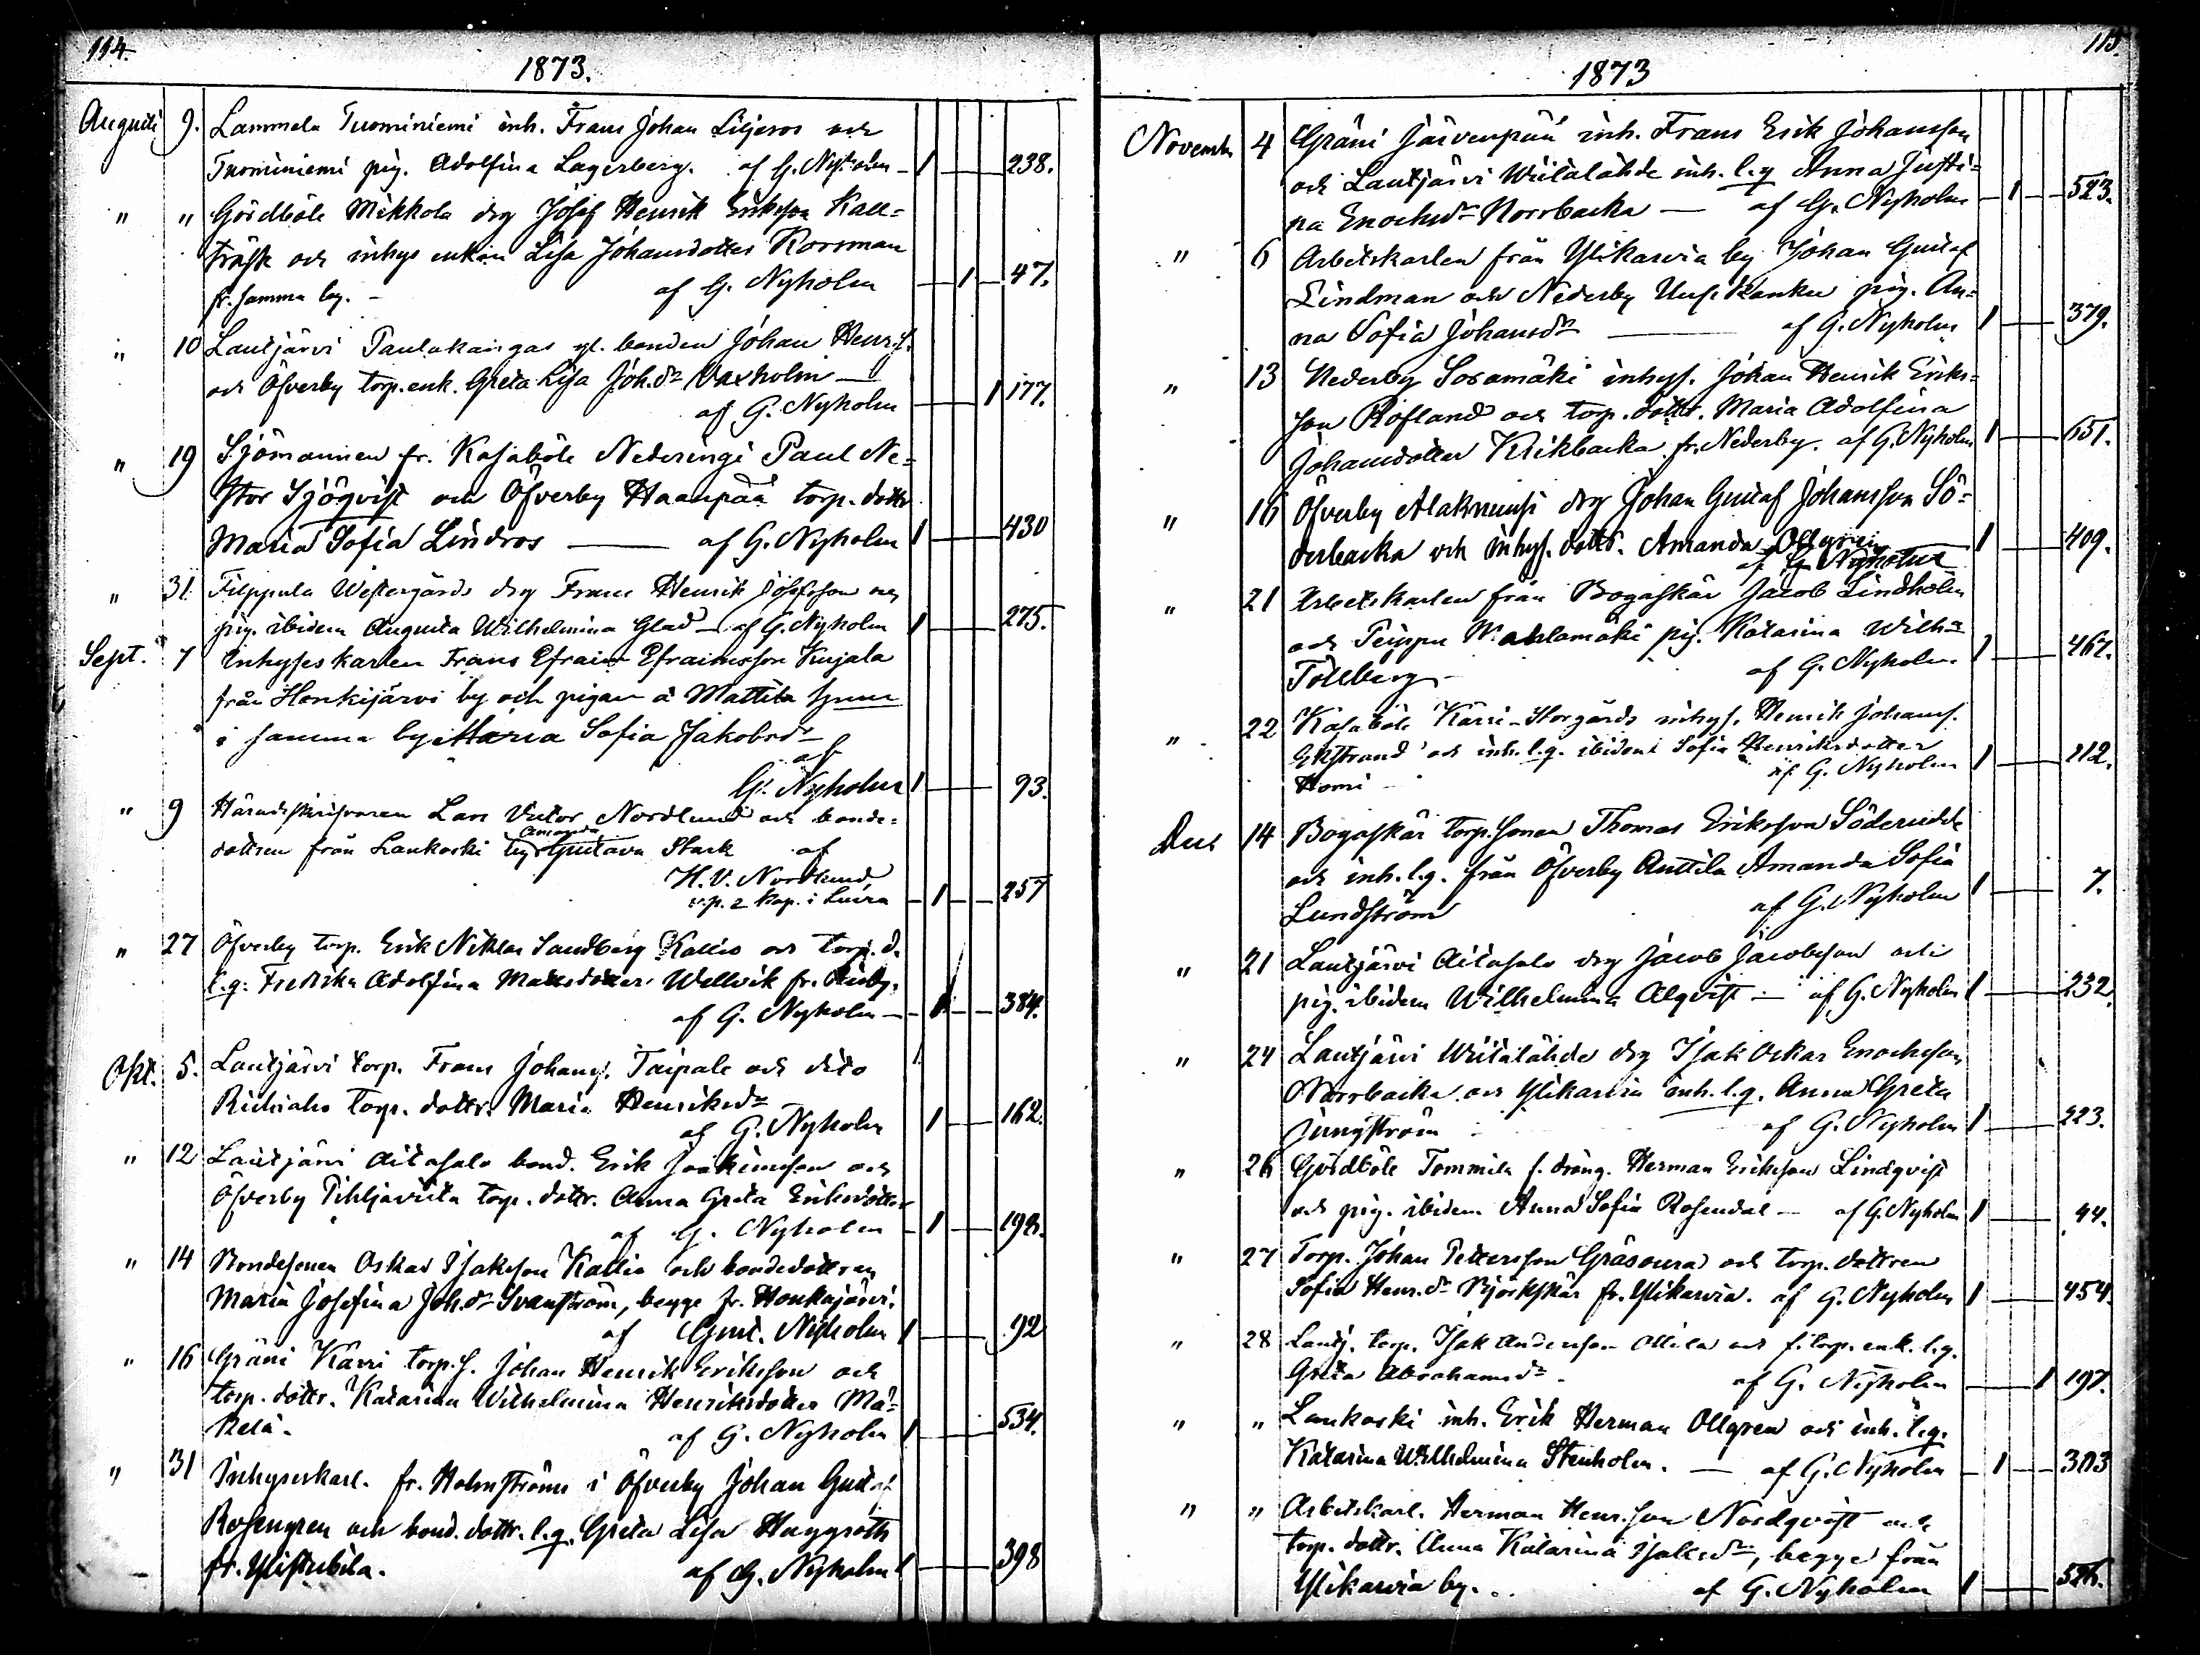 114.
1873.
Augusti 9. Lammela Tuominiemi inh. Frans Johan Liljeros och
Tuominiemi pig. Adolfina Lagerberg. af G. Nyholm 1 238.
" " Gördböle Mikkola drg Josef Henrik Eriksson Kall=
träsk och inhys enkan Lisa Johansdotter Korsman
fr. samma by. - af G. Nyholm 1 47.
" 10 Lautjärvi Paulakangas gl. bonden Johan Henr.s.
och Öfverby torp. enk. Greta Lisa Joh.dr Vaxholm —
af G. Nyholm 1 177.
" 19 Sjömannen fr. Kasaböle Nederingi Paul Ne=
stor Sjöqvist och Öfverby Haanpää torp. dottr
Maria Sofia Lindros — af G. Nyholm 1 430
" 31 Filppula Westergårds drg Frans Henrik Josefsson och
pig. ibidem Augusta Wilhelmina Glad — af G. Nyholm 1 275.
Sept. 7 Inhyses karlen Frans Efraim Efraimsson Kujala
från Honkijärvi by och pigan å Mattila
i samma by Maria Sofia Jakobsdr
af
G. Nyholm 1 93.
" 9 Häradsskrifvaren Lars Victor Nordlund och bonde=
Amanda
dottren från Lankoski by Gustava Stark af
H. V. Nordlund
v.p. 2 kap. i Luvia 1 257
" 27 Öfverby torp. Erik Niklas Sandberg Kallio och torp. d.
l.q. Fredrika Adolfina Matsdotter Wellvik fr.
af G. Nyholm — 1 384.
Okt. 5. Lautjärvi torp. Frans Johans. Taipale och dito
torp. dottr. Maria Henriksdr
af G. Nyholm 1 162.
" 12 Lautjärvi Aitasalo bond. Erik Joakimsson och
Öfverby Pihljaviita torp. dottr. Anna Greta Eriksdotter
af G. Nyholm 1 198.
" 14 Bondesonen Oskar Isaksson Kallio och bondedottren
Maria Josefina Joh.dr Svanström, begge fr. Honkajärvi.
af Gust. Nyholm 1 92
" 16 Gräni Kärri torp. s. Johan Henrik Eriksson och
torp. dottr. Katarina Wilhelmina Henriksdotter Mä=
kelä. af G. Nyholm 1 534.
" 31 Inhyseskarl. fr. Holmströms i Öfverby Johan Gustaf
Rosengren och bond. dottr. l.q. Greta Lisa Haggroth
fr. Ylistubila. af G. Nyholm 1 398
115.
1873
Novemb 4 Gräni Järvenpää inh. Frans Erik Johansson
och Lautjärvi Wiitalähde inh. l.q Anna Justi=
na Enochsdr Norrbacka — af G. Nyholm 1 523.
" 6 Arbetskarlen från Ylikarvia by Johan Gustaf
Lindman och Nederby pig. An=
na Sofia Johansdr — af G. Nyholm 1 379.
" 13 Nederby Soramäki inhys. Johan Henrik Eriks=
son Rofland och torp. dottr. Maria Adolfina
Johansdotter Krikbacka fr. Nederby. af G. Nyholm 1 651.
" 16 Öfverby Alaknuusi drg Johan Gustaf Johansson Sö=
derbacka och inhys. dottr. Amanda Ollgren
af G. Nyholm 1 409.
" 21 Arbetskarlen från Bogaskär Jacob Lindholm
och Peippu Wahlamäki pig. Katarina Wilh:a
Tollberg - af G. Nyholm. 1 467.
" 22 Kasaböle Kärri-Storgårds inhys. Henrik Johans.
Ekstrand och inh. l.q. ibidem Sofia Henriksdotter
Homi af G. Nyholm 1 112.
Dec 14 Bogaskär torp. sonen Thomas Eriksson Söderudde
och inh. l.q. från Öfverby Anttila Amanda Sofia
Lundström af G. Nyholm 1 7.
" 21 Lautjärvi Aitasalo drg Jacob Jacobsson och
pig. ibidem Wilhelmina Alqvist — af G. Nyholm 1 232.
" 24 Lautjärvi Wiitalähde drg Isak Oskar Enochsson
Norrbacka och Ylikarvia inh. l.q. Anna Greta
Ljungström af G. Nyholm 1 223.
" 26 Gördböle Tommila f. dräng. Herman Eriksson Lindqvist
och pig. ibidem Anna Sofia Rosendal — af G. Nyholm 1 44.
" 27 Torp. Johan Pettersson Gräsoura och torp. dottren
Sofia Henr.dr Björkskär fr. Ylikarvia. af G. Nyholm 1 454.
" 28 Lautj. torp. Isak Andersson Ollila och f. torp. enk. l.q.
Greta Abrahamsdr. af G. Nyholm 1 197.
" " Lankoski inh. Erik Herman Ollgren och inh. l.q.
Katarina Wilhelmina Stenholm. — af G. Nyholm 1 303
" " Arbetskarl. Herman Henr.son Nordqvist och
torp. dottr. Anna Katarina Isaksdr, begge från
Ylikarvia by. af G. Nyholm 1 526.